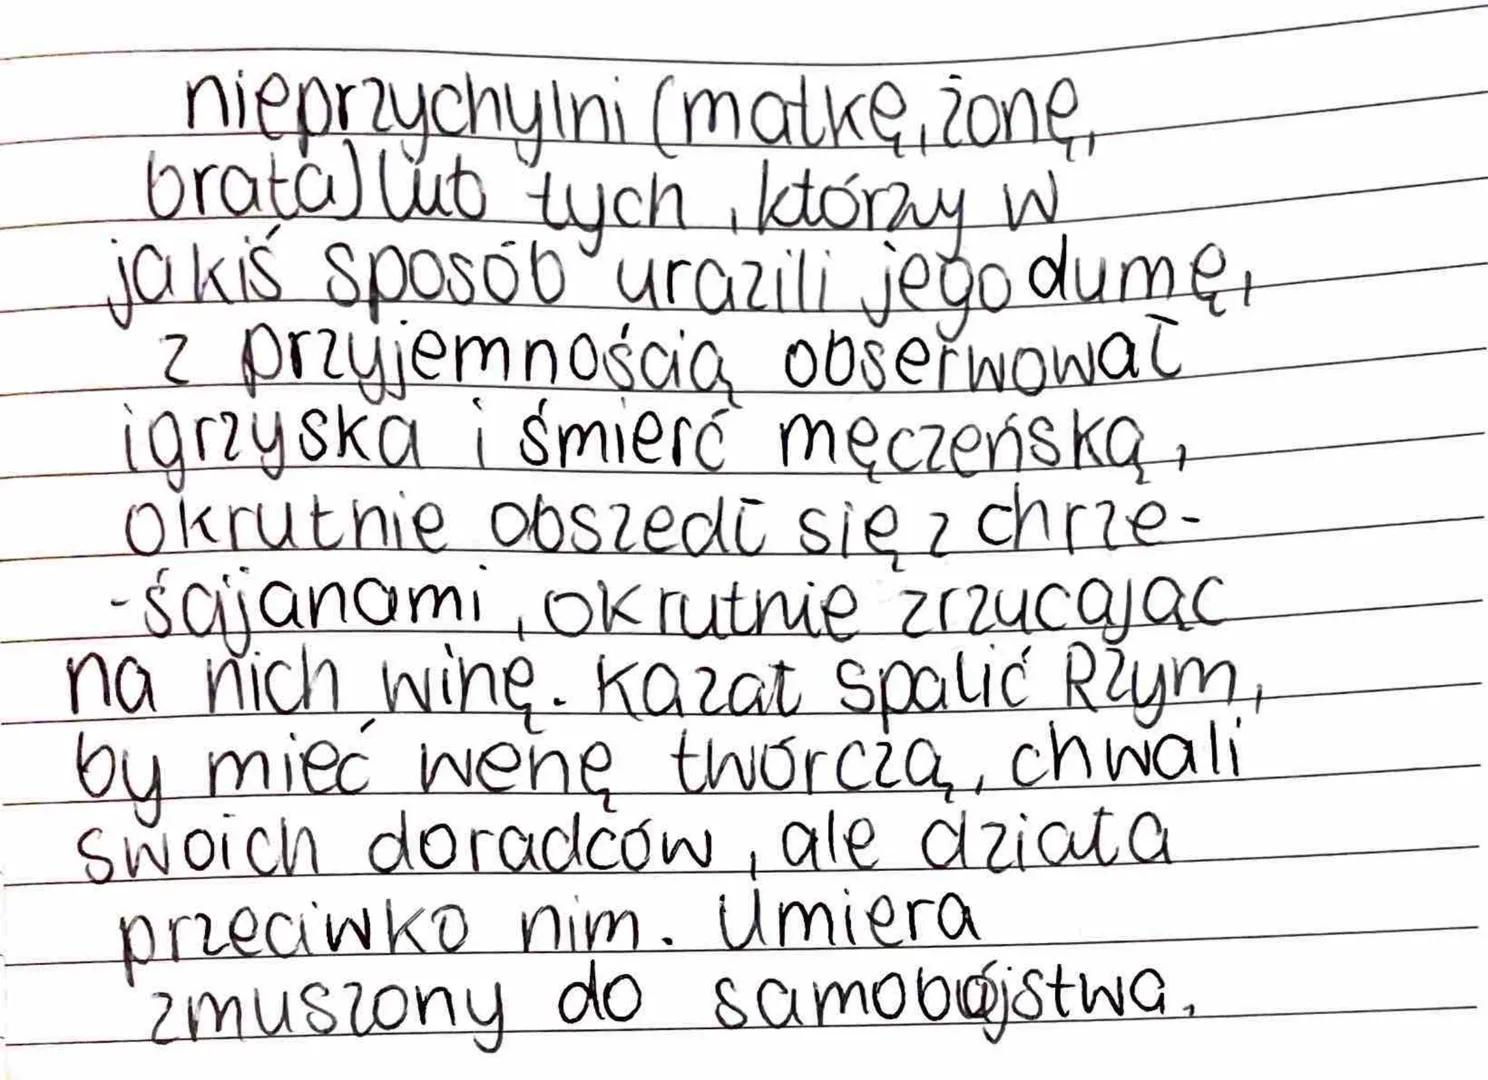 nieprzychylni (matkę, żonę,
brata) lub tych, którzy w
jakiś sposób urazili jego dumę,
z przyjemnością obserwował
igrzyska i śmierć męczeńską,
okrutnie obszedł się z chrze-
-ścijanami, okrutnie zrzucając
na nich winę. Kazał spalić Rzym,
by mieć wenę twórczą, chwali
swoich doradców, ale działa
przeciwko nim. Umiera
zmuszony do samobójstwa.